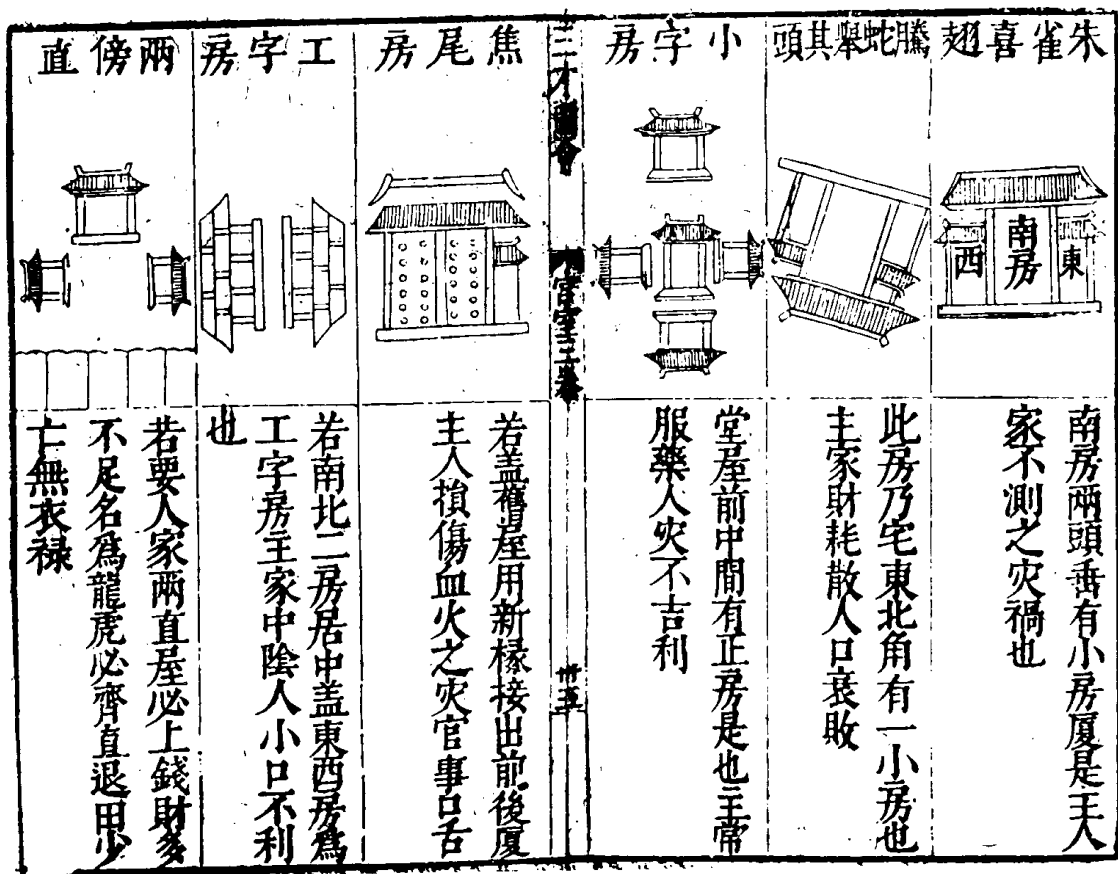 朱雀喜翅
南房
東
西
南房兩頭垂有小房厦是主人
家不測之灾禍也
騰蛇舉其頭
此房乃宅東北角有一小房也
主家財耗散人口衰敗
小字房
堂屋前中間有正房是也主常
服藥人灾不吉利
三才圖會
宮室二卷
卅五
焦尾房
若盖舊屋用新椽接出前後厦
主人損傷血火之灾官事口舌
工字房
若南北二房居中盖東西房爲
工字房主家中陰人小口不利
也
兩傍直
若要人家兩直屋必上錢財多
不足名爲龍虎必齊直退田少
亡無衣禄